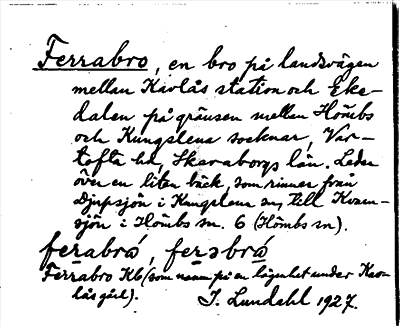 Ferrabro, en bro på landsvägen
mellan Kavlås station och Eke-
dalen på gränsen mellan Hömbs
och Kungslena socknar, Var-
tofta hd, Skaraborgs län. Leder
över en liten bäck, som rinner från
Djupsjön i Kungslena sn, till Kvarn-
sjön i Hömbs sn. 6 (Hömbs sn).
ferabrá, ferəbrá
Ferrabro Kb (som namn på en lägenhet under Kav-
lås gård).
I. Lundahl 1927.